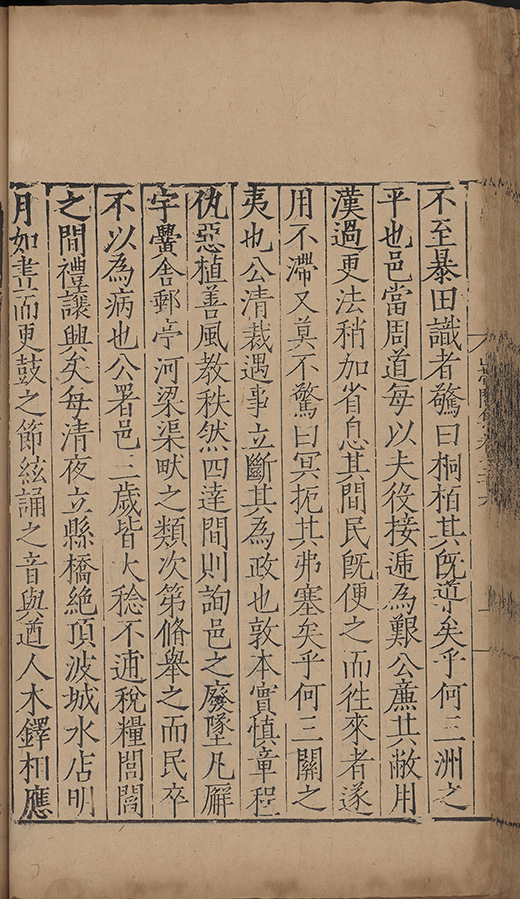 不至暴田識者驚曰桐栢其旣道矣乎何三洲之
平也邑當周道每以夫役接遞為艱公廉其敝用
漢過更法稍加省息其間民旣便之而徃來者遂
用不滯又莫不驚曰冥扼其弗塞矣乎何三關之
夷也公清裁遇事立斷其為政也敦本實慎章程
仇惡植善風教秩然四達間則詢邑之廢墜凡廨
宇黌舍郵亭河梁渠畎之類次第脩舉之而民卒
不以為病也公署邑二歲皆大稔不逋稅糧閭閻
之間禮讓興矣每清夜立縣橋絶頂波城水店明
月如晝而更鼓之節絃誦之音與遒人木鐸相應